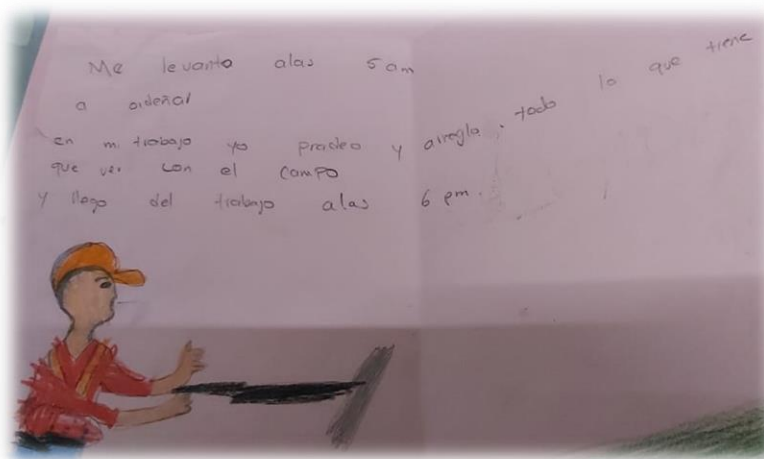 Me levanto alas 5 am
a ordeñal
en mi trabajo yo pradeo y arreglo. todo lo que tiene
que ver con el campo
y llego del trabajo alas 6 pm.